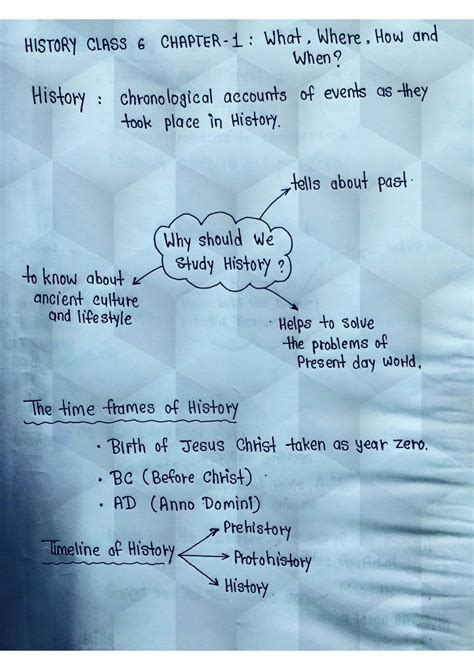 HISTORY CLASS 6 CHAPTER-1: What, Where, How and
When?
History : chronological accounts of events as they
took place in History.
tells about past.
Why should we
study History?
to know about
ancient culture
and lifestyle
Helps to solve
the problems of
Present day world.
The time frames of History
• Birth of Jesus Christ taken as year zero.
• BC (Before Christ)
• AD (Anno Domini)
Prehistory
Timeline of History
Protohistory
History.